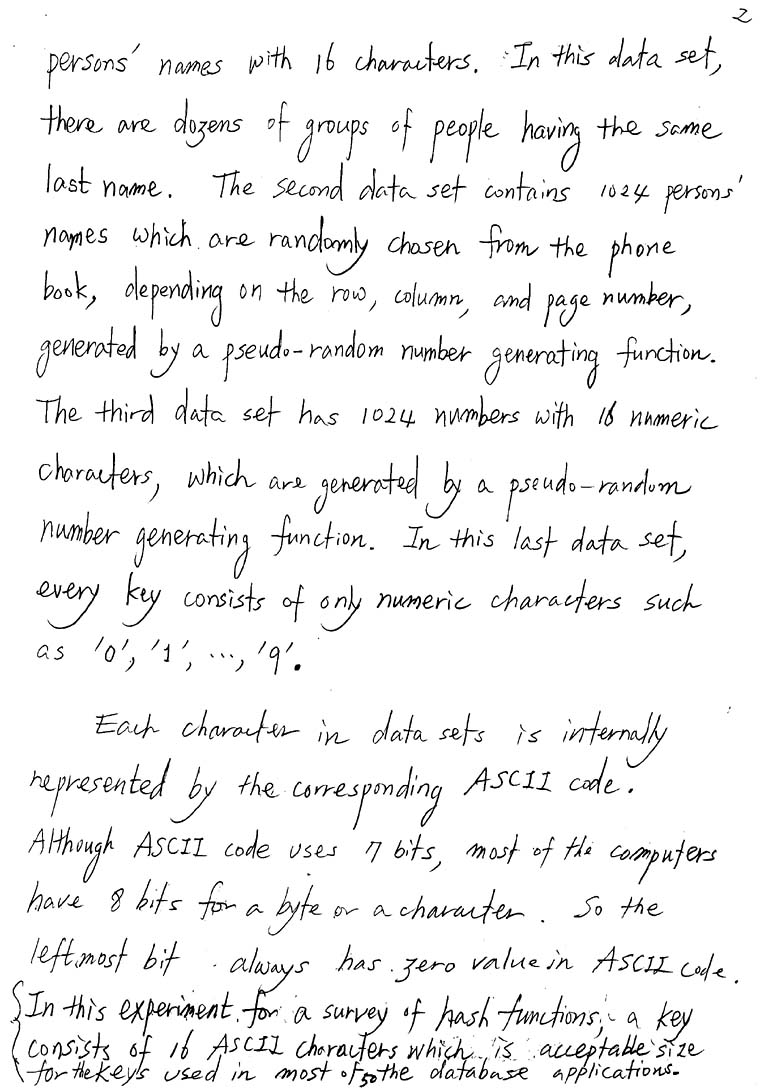 2
persons' names with 16 characters. In this data set,
there are dozens of groups of people having the same
last name. The second data set contains 1024 persons'
names which are randomly chosen from the phone
book, depending on the row, column, and page number,
generated by a pseudo-random number generating function.
The third data set has 1024 numbers with 16 numeric
characters, which are generated by a pseudo-random
number generating function. In this last data set,
every key consists of only numeric characters such
as '0', '1', ..., '9'.
Each character in data sets is internally
represented by the corresponding ASCII code.
Although ASCII code uses 7 bits, most of the computers
have 8 bits for a byte or a character. So the
leftmost bit always has zero value in ASCII code.
In this experiment for a survey of hash functions, a key
consists of 16 ASCII characters which is acceptable size
for the keys used in most of the database applications.
50